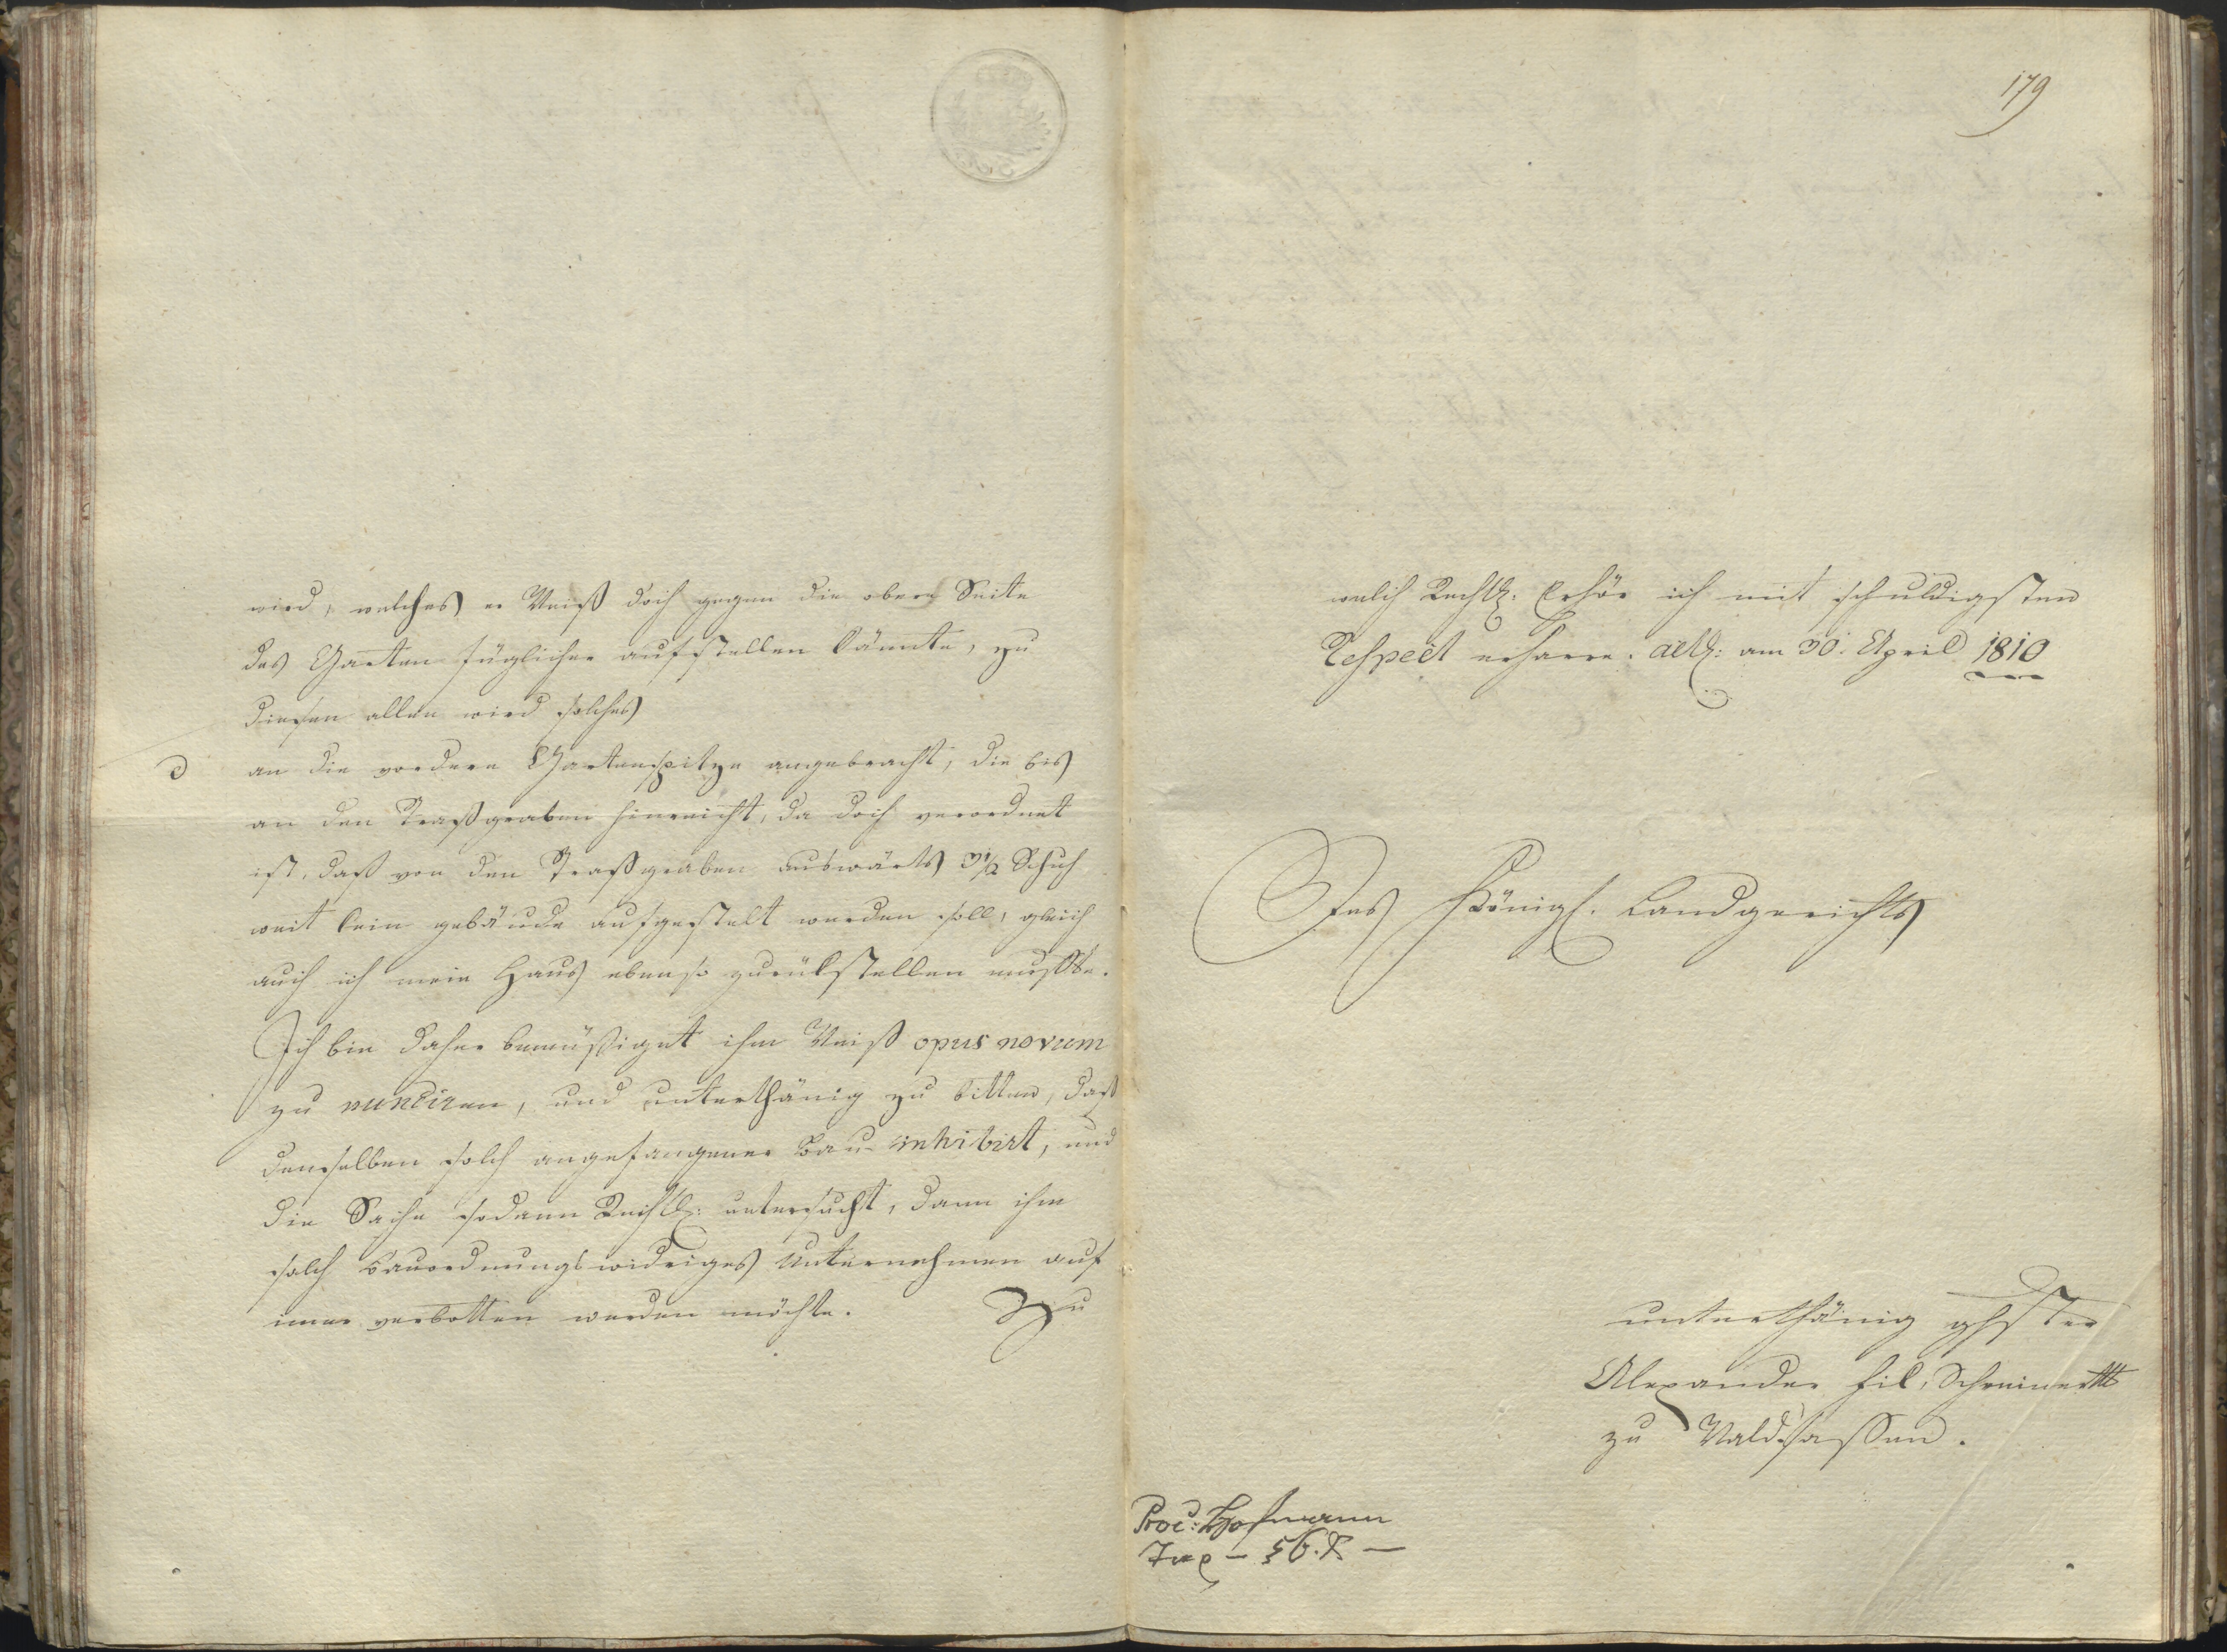 wird, welches er Weiß doch gegen die obere Seite
des Garten füglicher aufstellen könnte, zu
diesen allen wird solches
d an die vordere Gartenspitze angebracht, die bis
an den Straßgraben hinreicht, da doch verordnet
ist, daß von den Straßgraben auswärts 3½ Schuh
weit kein gebäude aufgestelt werden soll, gleich
auch ich mein Haus ebenso zurükstellen mußte.
Ich bin daher bemüßiget ihm Weiß opus novum
zu nunciren, und unterthänig zu bitten, daß
demselben solch angefangener Bau inhibirt, und
die Sache sodann Rechtl: untersucht, dann ihm
solch bauordnungswidriges Unternehmen auf
imer verbotten werden möchte. Zu
179
welch Rechtl: Erhör ich mit schuldigsten
Respect erharre. am 30. April 1810
Des Königl. Landgerichts
unterthänig ghster
Alexander Schreiner
zu Waldsassen.
Proc: Hofmann